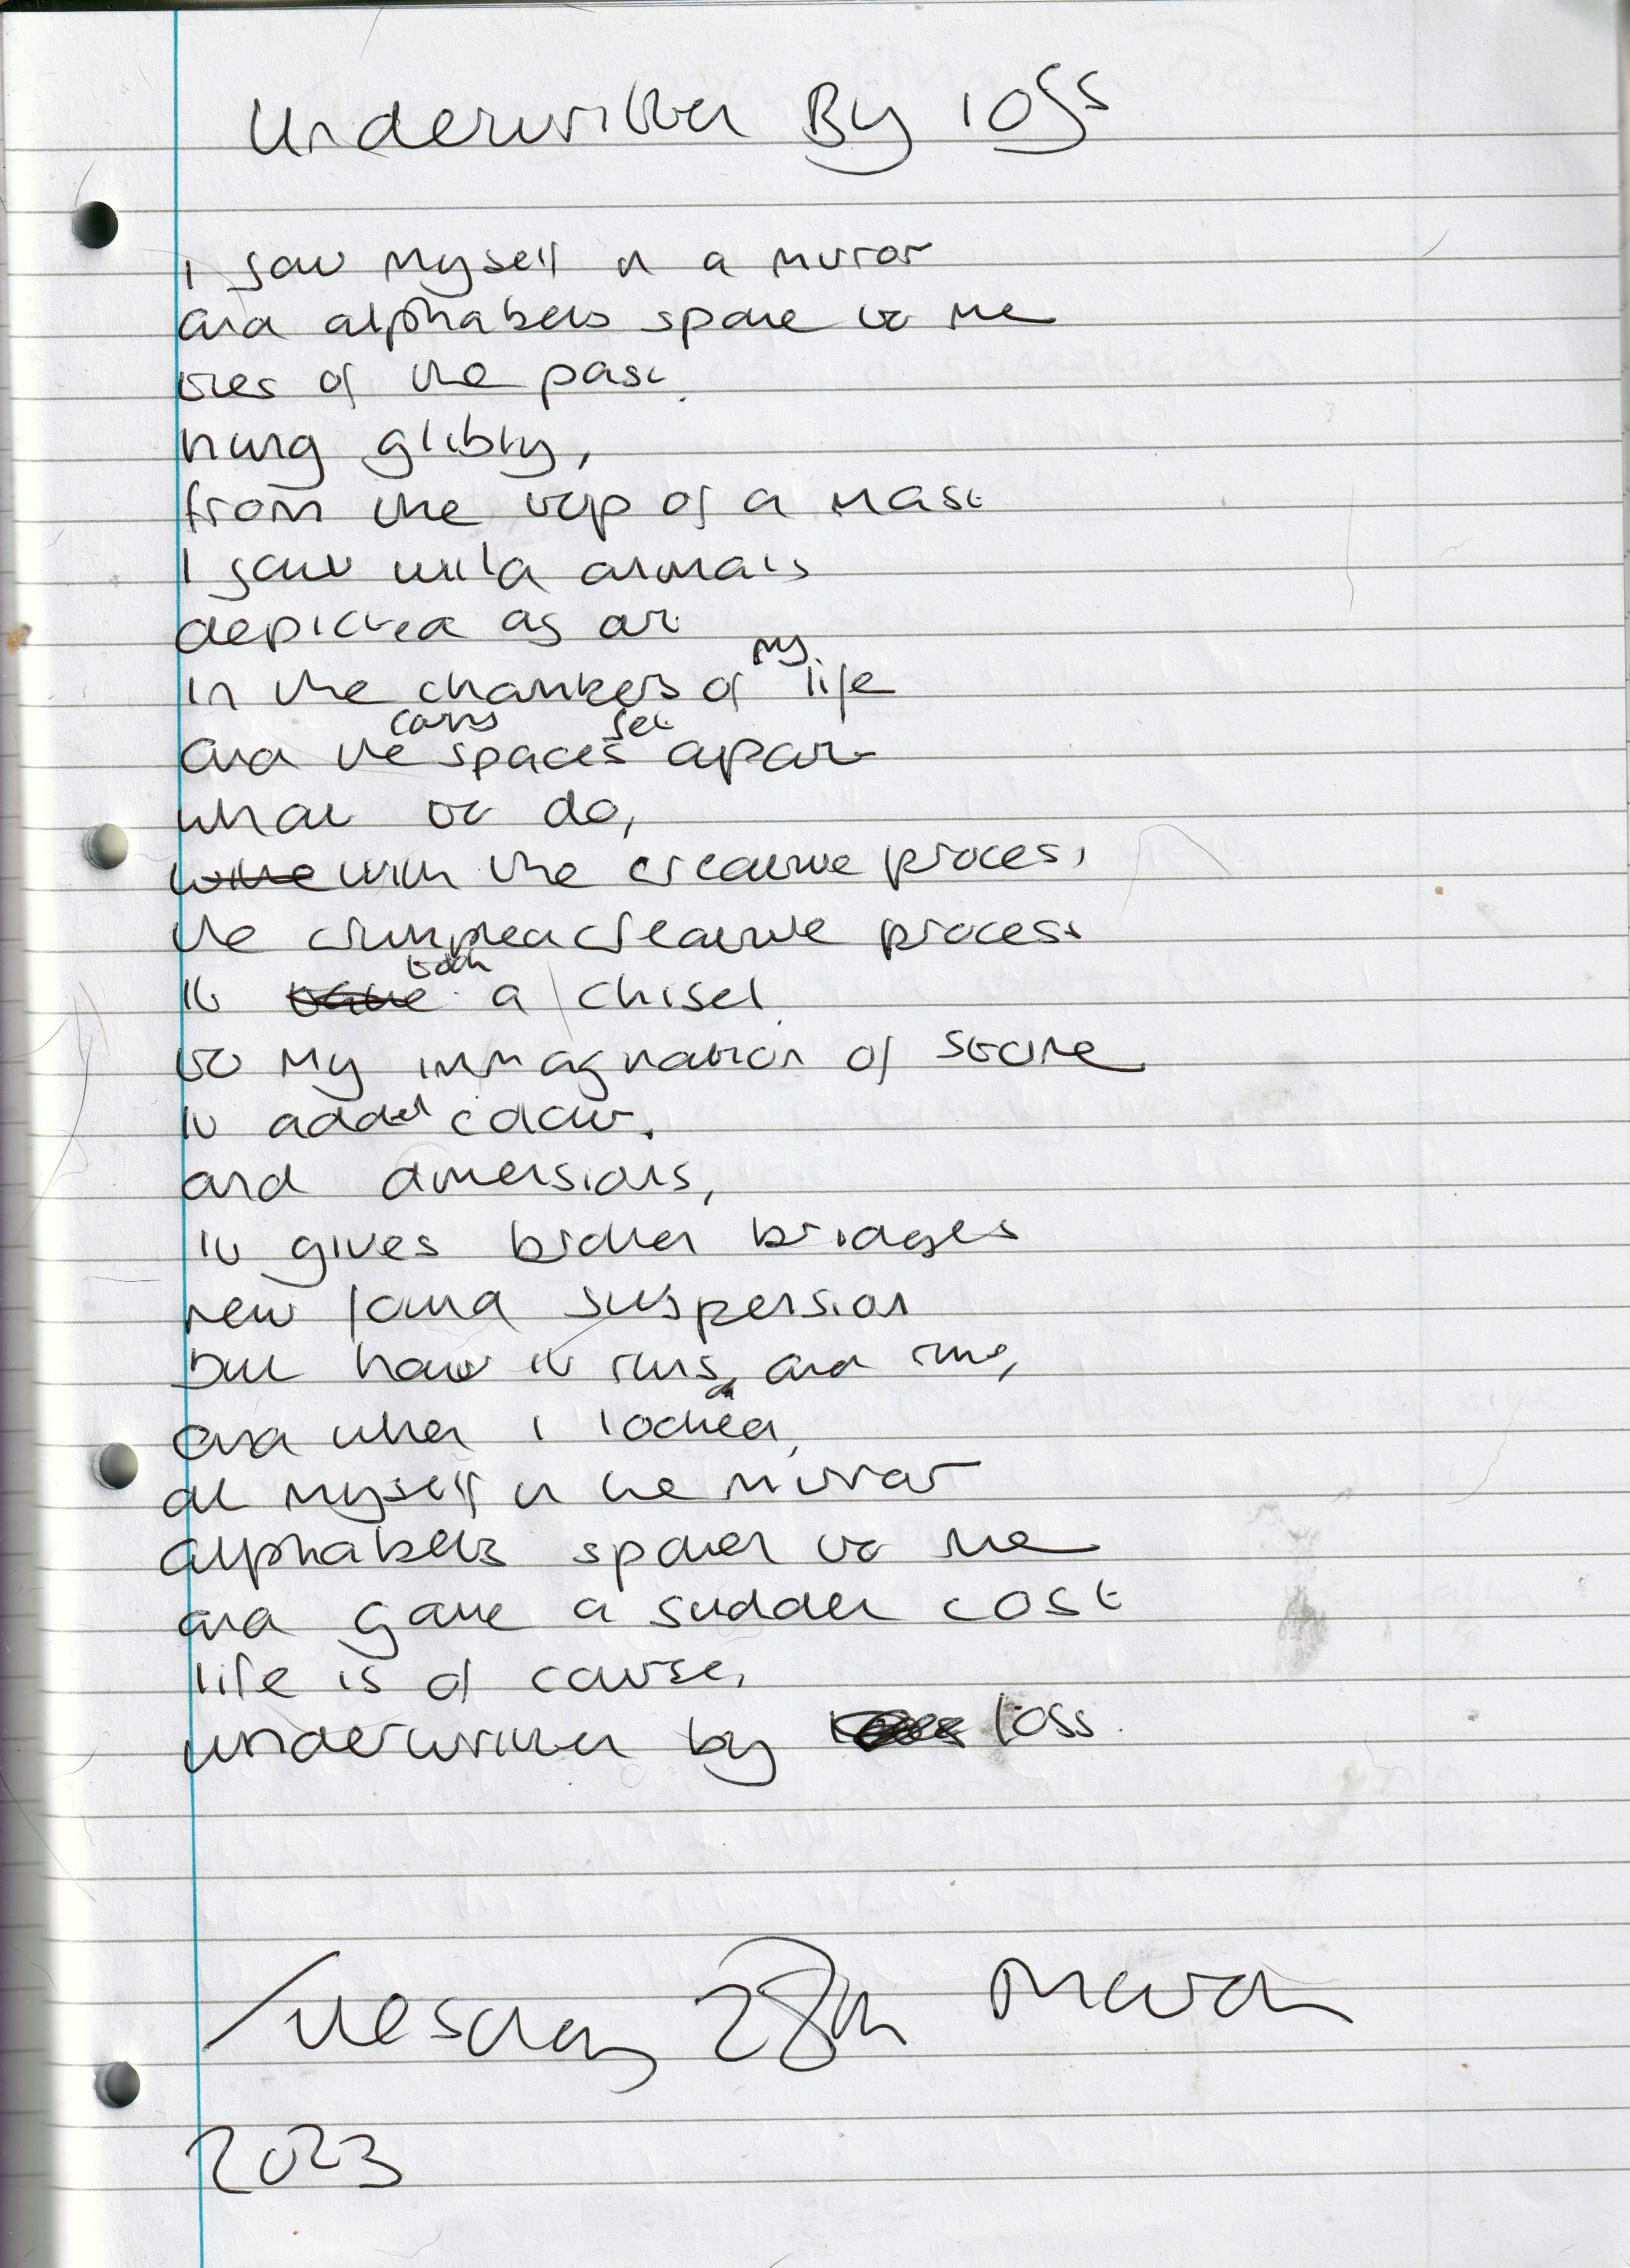 Underwritten By loss
I saw myself in a mirror
and alphabets spoke to me
of the past.
hung glibly,
from the top of a mast
I saw wild animals
depicted as art
in the chambers of my life
and the caves spaces set apart
what to do,
with the creative process,
the creative process
it took a chisel
to my immagination of stone
it added colour.
and dimensions,
it gives broken bridges
new found suspension
but how it runs, and runs,
and when I looked,
at myself in the mirror
alphabets spoken to me
and gave a sudden cost
life is of course,
underwritten by loss.
Tuesday 28th March
2023